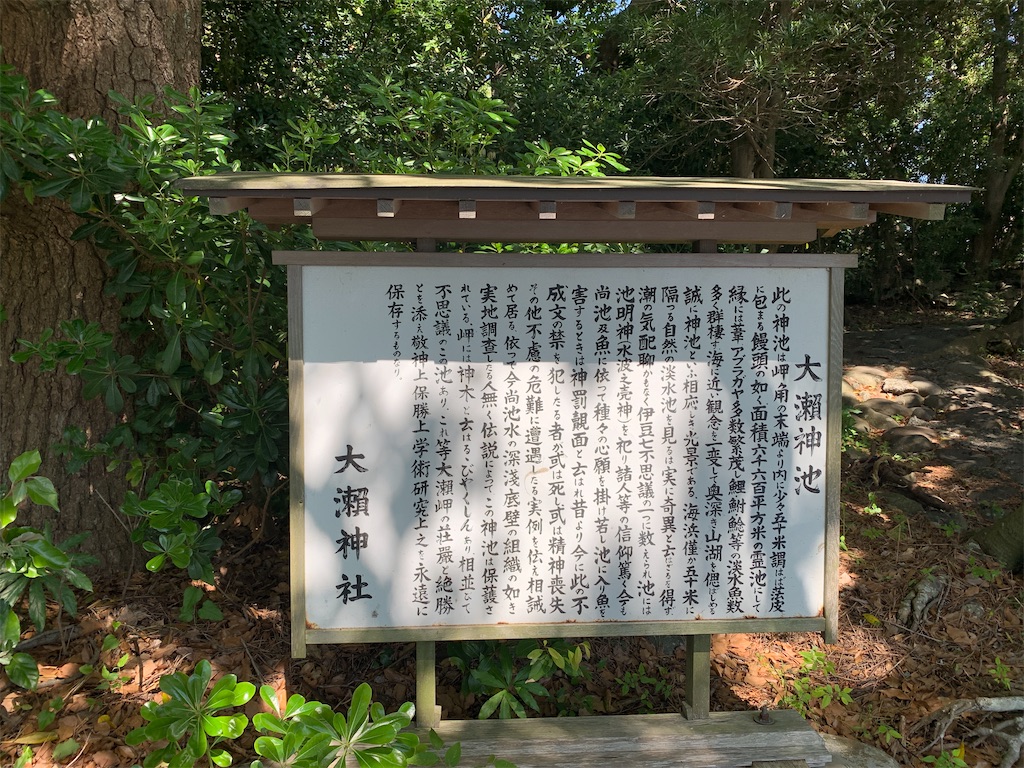 大瀬神池
此の神池は岬角の末端より内に少々五十米謂はば茎皮
に包まる饅頭の如く面積六千六百平方米の霊池にして
縁には葦アシカヤ多数繁茂し鯉鮒鯰等の淡水魚数
多く群棲す海に近い観念を一変して奥深き山湖を偲ばしめる
誠に神池と云ふ相応しき光景である。海浜僅か五十米に
隔つる自然の淡水池を見るは実に奇異と云はざるを得ず
潮の気配聊かもなく伊豆七不思議の一つに数えられ池には
池明神(水波之売神)を祀り諸人等の信仰篤く今も
尚池及魚に依って種々の心願を掛け若し池に入り魚を
害するときは神罰覿面と云はれ昔より今に此の不
成文の禁を犯したる者が或は死し或は精神喪失
その他不慮の危難に遭遇したる実例を伝え相誡
めて居る、依って今尚池水の深浅底壁の組織の如き
実地調査したる人無く伝説によってこの神池は保護さ
れている。岬には神木と云はるゝびやくしんあり相並で
不思議のこの池あり、これ等大瀬岬の荘厳と絶勝
とを添え敬神上保勝上学術研究上之を永遠に
保存するものなり。
大瀬神社